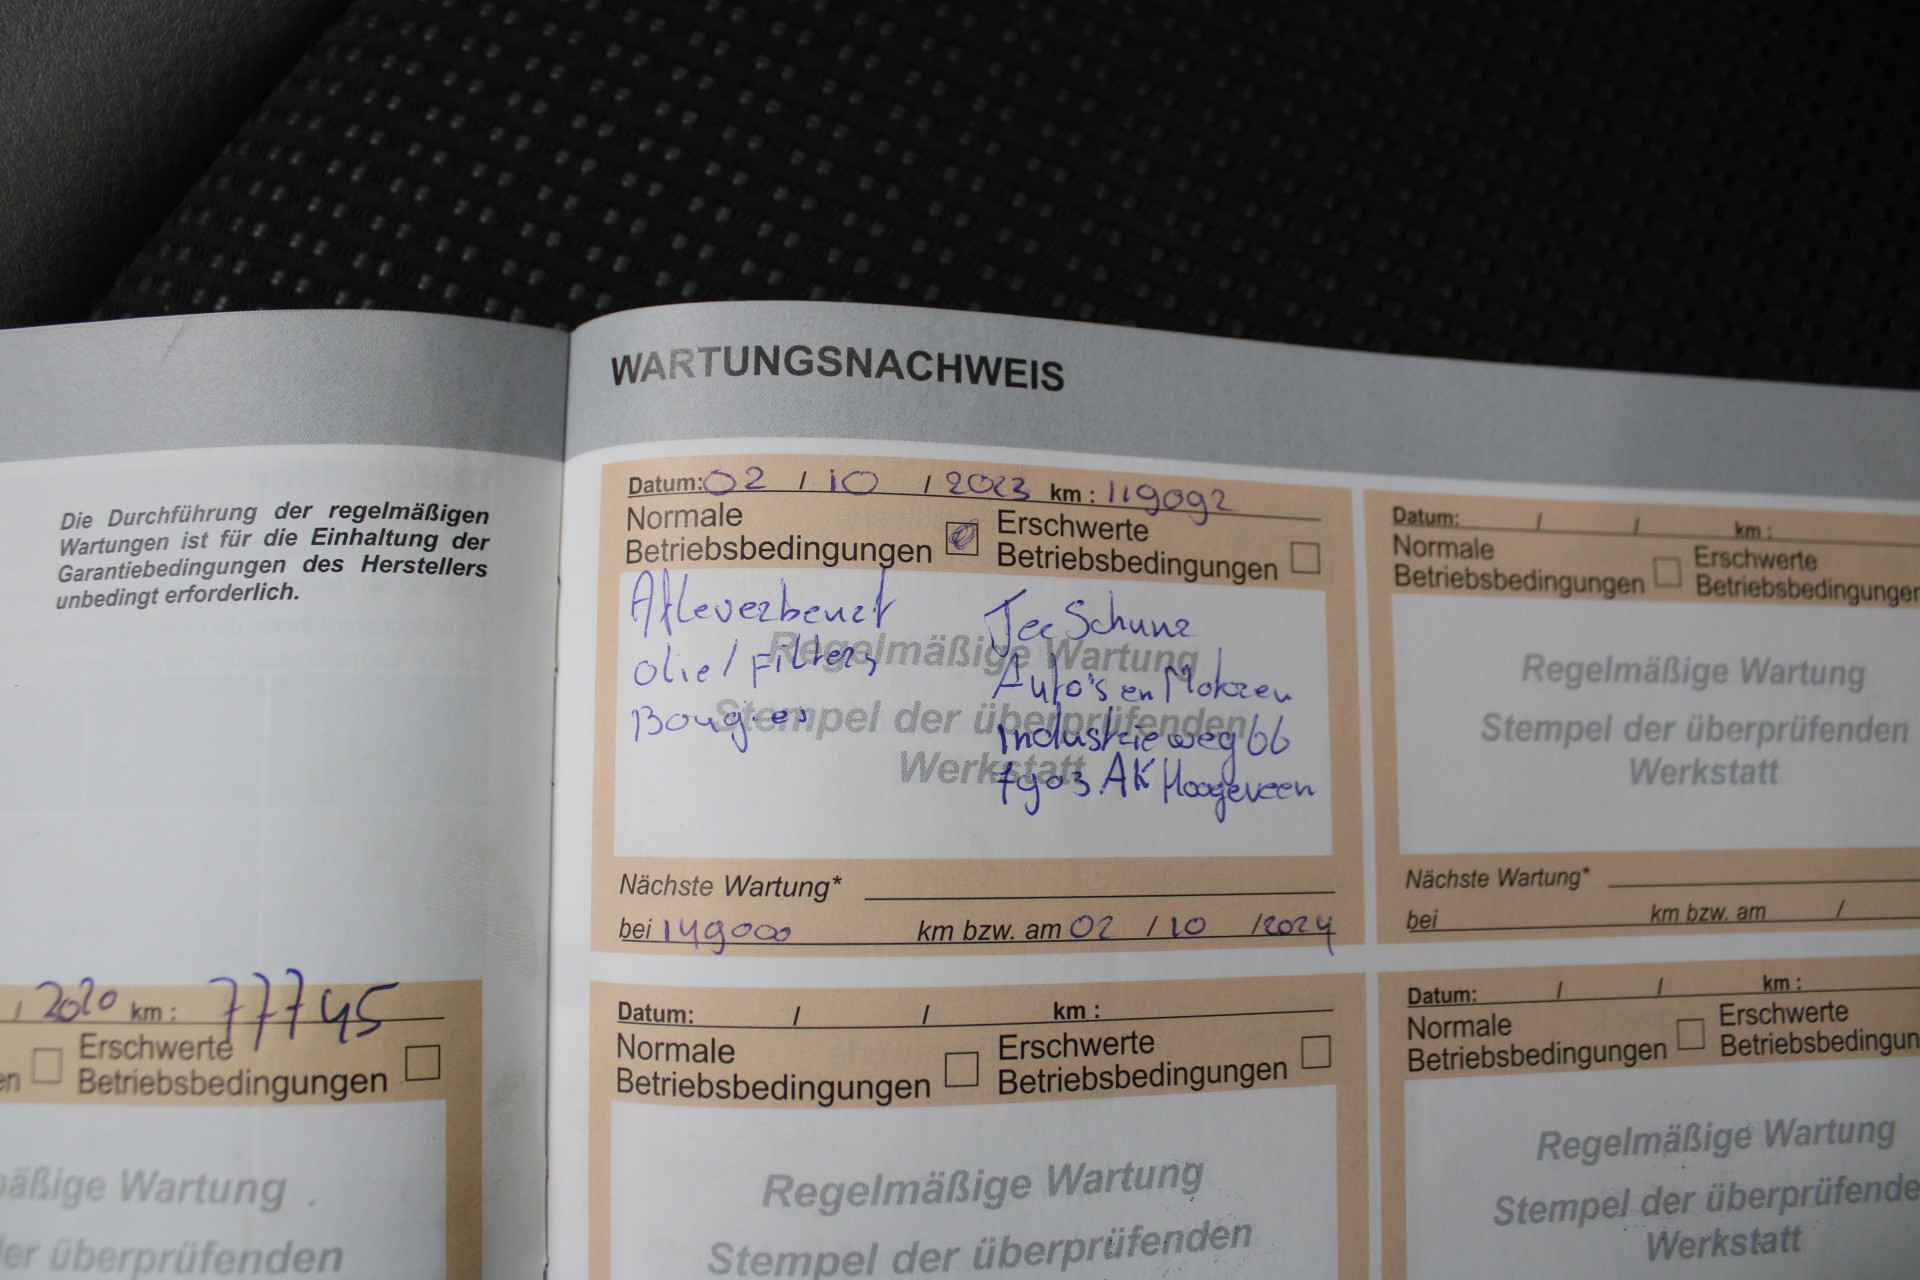 Die Durchführung der regelmäßigen
Wartungen ist für die Einhaltung der
Garantiebedingungen des Herstellers
unbedingt erforderlich.
/ 2020 km : 77745
en Erschwerte
Betriebsbedingungen
mäßige Wartung
der überprüfenden
WARTUNGSNACHWEIS
Datum: 02 / 10 / 2023 km : 119092
Normale Erschwerte
Betriebsbedingungen Betriebsbedingungen
Afleverbeurt
olie/Filters
Bougies
Jee Schunz
Auto's en Motoren
Industrieweg 66
7903 AK Hoogeveen
Regelmäßige Wartung
Stempel der überprüfenden
Werkstatt
Nächste Wartung*
bei 149000 km bzw. am 02 / 10 /2024
Datum: / / km :
Normale Erschwerte
Betriebsbedingungen Betriebsbedingungen
Regelmäßige Wartung
Stempel der überprüfenden
Werkstatt
Nächste Wartung*
bei km bzw. am /
Datum: / / km :
Normale Erschwerte
Betriebsbedingungen Betriebsbedingungen
Regelmäßige Wartung
Stempel der überprüfenden
Datum: / / km :
Normale Erschwerte
Betriebsbedingungen Betriebsbedingun
Regelmäßige Wartung
Stempel der überprüfende
Werkstatt